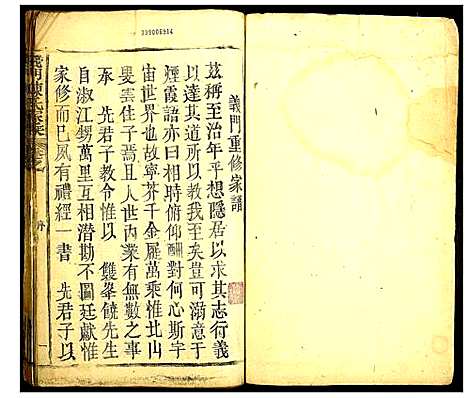 399006914
義門重修家譜
茲稱至治年平想隱居以求其志行義
以達其道所以教我至矣豈可溺意于
煙霞語亦曰相時俯仰酬對何心斯字
宙世界也故寧芥千金屣萬乘惟北山
叟雲佳子焉且人世內業有無數之事
承 先君子教令惟以 雙峯饒先生
自淑江錫萬里互相潜勘不圖廷獻惟
家修而已夙有禮經一書 先君子以